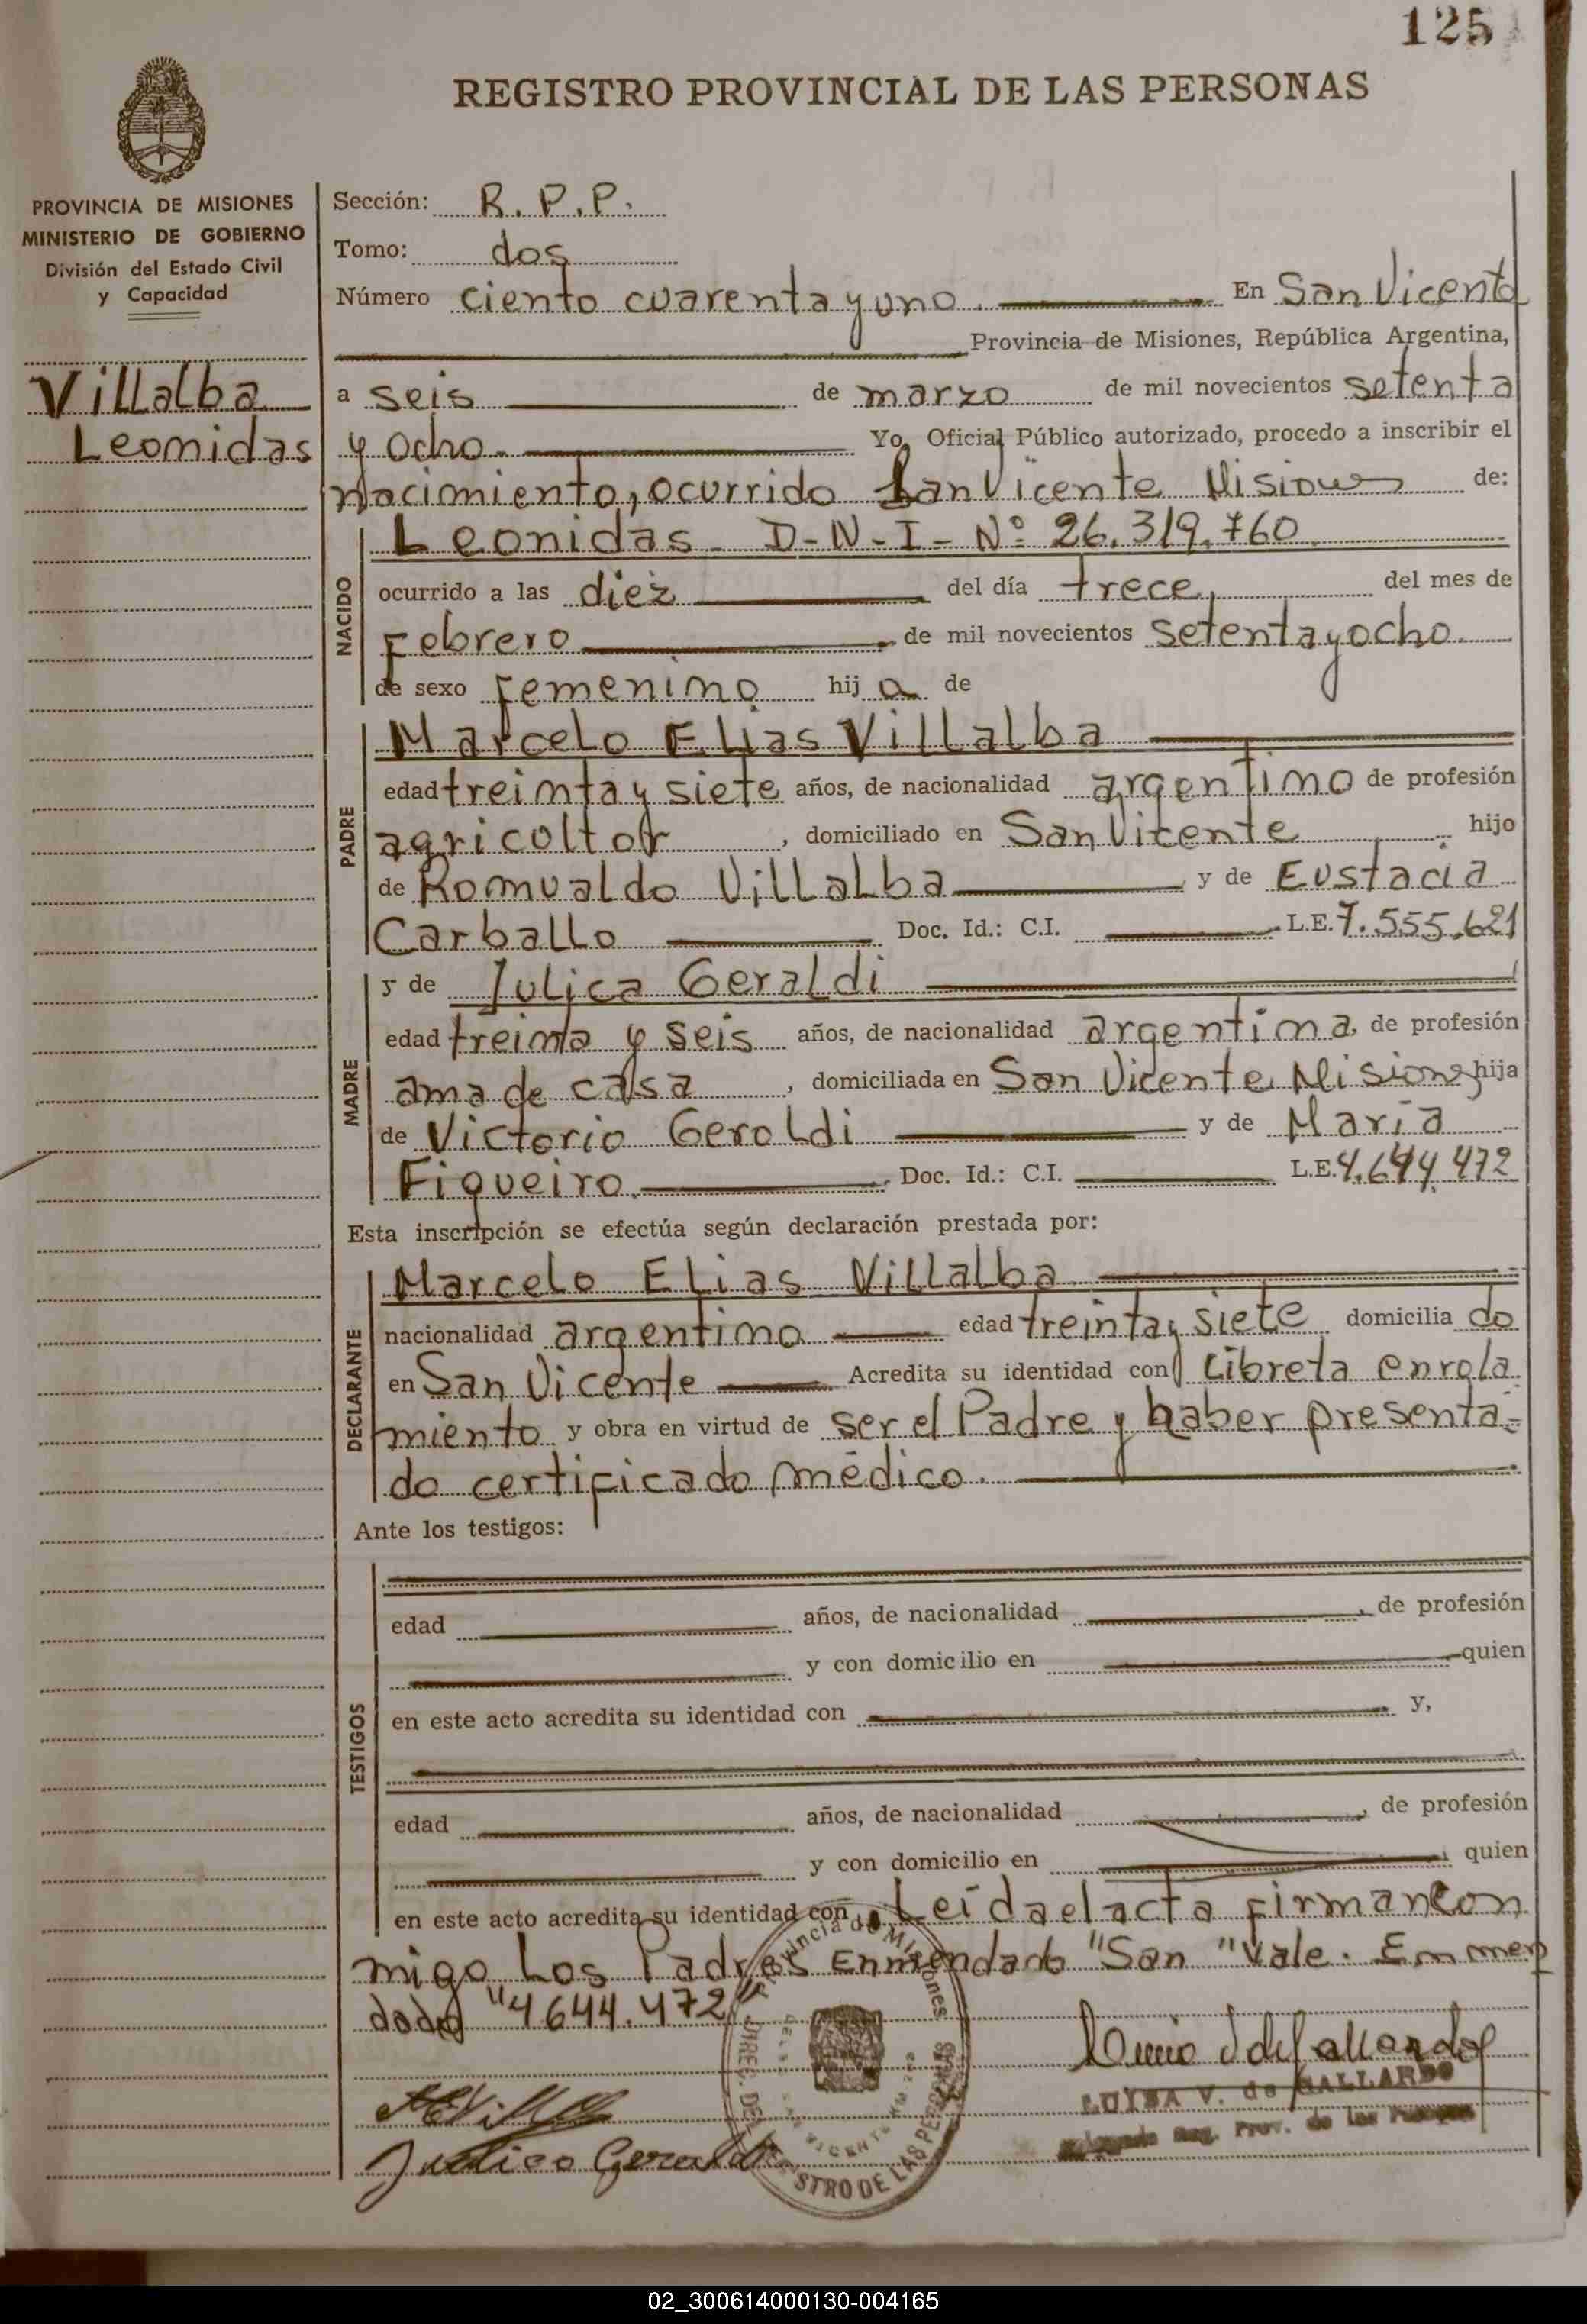 125
REGISTRO PROVINCIAL DE LAS PERSONAS
PROVINCIA DE MISIONES
MINISTERIO DE GOBIERNO
División del Estado Civil
y Capacidad
Villalba
Leonidas
Sección: R.P.P.
Tomo: dos
Número ciento cuarenta y uno. En San Vicente
Provincia de Misiones, República Argentina,
a seis de marzo de mil novecientos setenta
y ocho. Yo, Oficial Público autorizado, procedo a inscribir el
nacimiento, ocurrido San Vicente Misiones de:
NACIDO
Leonidas D-N-I- Nº 26.319.760
ocurrido a las diez del día trece, del mes de
Febrero de mil novecientos setenta y ocho
de sexo femenino hija de
PADRE
Marcelo Elias Villalba
edad treinta y siete años, de nacionalidad argentino de profesión
agricoltor, domiciliado en San Vicente hijo
de Romualdo Villalba y de Eustacia
Carballo Doc. Id.: C.I. L.E. 7.555.621
MADRE
y de Julica Geraldi
edad treinta y seis años, de nacionalidad argentina, de profesión
ama de casa, domiciliada en San Vicente, Misiones hija
de Victorio Geraldi y de María
Fiqueiro. Doc. Id.: C.I. L.E. 4.644.472
Esta inscripción se efectúa según declaración prestada por:
DECLARANTE
Marcelo Elias Villalba
nacionalidad argentino edad treinta y siete domiciliado
en San Vicente Acredita su identidad con Libreta enrola
miento y obra en virtud de ser el Padre y haber presenta-
do certificado médico.
Ante los testigos:
TESTIGOS
edad años, de nacionalidad , de profesión
y con domicilio en quien
en este acto acredita su identidad con y,
edad años, de nacionalidad , de profesión
y con domicilio en quien
en este acto acredita su identidad con Leída el acta firman con
migo Los Padres Enmendado "San" Vale. Enmen
dado "4644.472"
Julica Geraldi
LUISA V. de GALLARDO
Reg. Prov. de las Personas
Provincia de Misiones
REGISTRO DE LAS PERSONAS
02_300614000130-004165